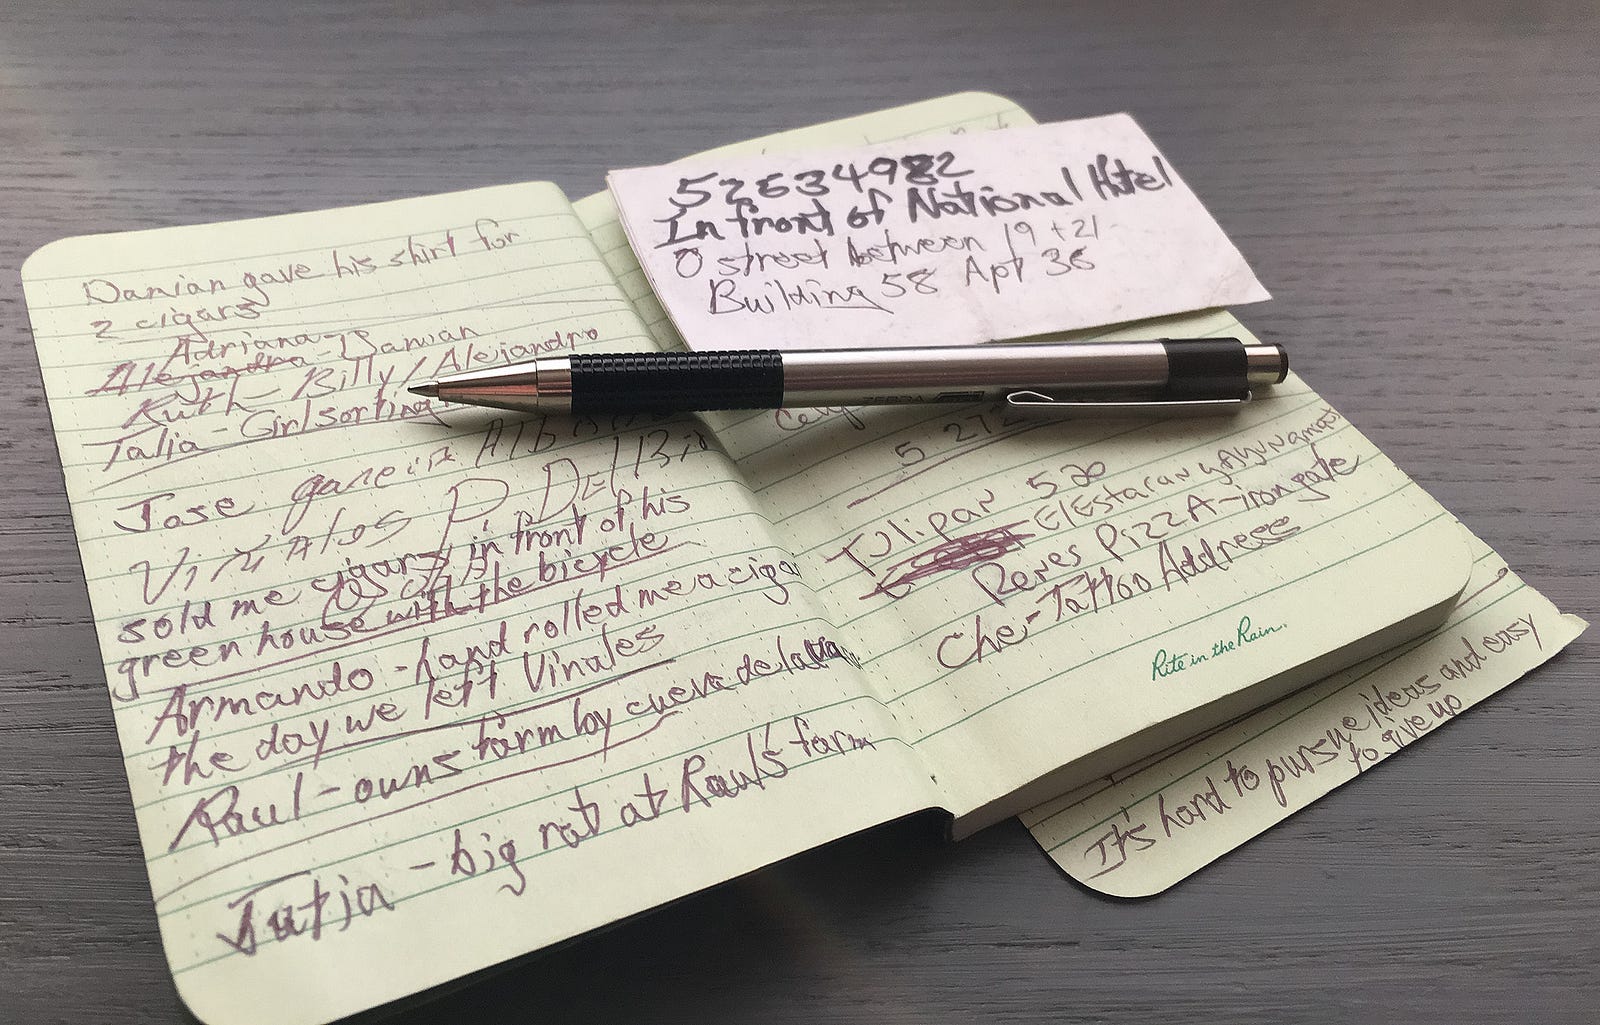 Danian gave his shirt for
2 cigars
Adriana - Damian
Alejandra
Ruth - Billy / Alejandro
Talia - Girl sorting
Jose garcia
Viñales P. Del
sold me cigars in front of his
green house with the bicycle
Armando - hand rolled me a cigar
the day we left Vinales
Raul - owns farm by cueva de la
Jutia - big rat at Raul's farm
52634982
In front of National Hotel
O street between 19 + 21
Building 58 Apt 36
ZEBRA
5 272
Tulipan 520
ElEstacan y Ayunamiento
Reres PizzA - iron gate
Che - Tattoo Address
Rite in the Rain.
It's hard to pursue ideas and easy
to give up